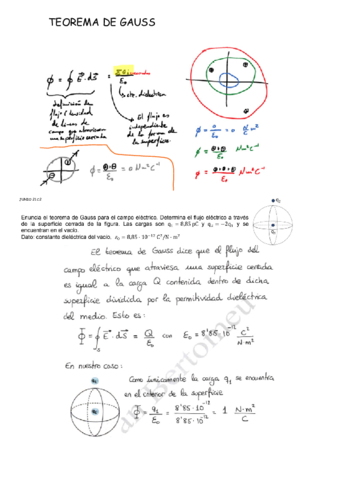 TEOREMA DE GAUSS
ϕ = ∮ E⃗ · dS⃗ = ΣQ encerrada / ε₀
↳ cte. dieléctrica
definición de
flujo (densidad
de líneas de
campo que atraviesan
una superficie cerrada
* El flujo es
independiente
de la forma de
la superficie
ϕ = ⊕⊖ / ε₀ = 0 N m² C⁻¹
ϕ = 0 / ε₀ = 0 N m² C⁻¹
ϕ = ⊕+⊕ / ε₀ = N m² C⁻¹
ϕ = ⊕+⊕+⊕ / ε₀ = N m² C⁻¹
Enuncia el teorema de Gauss para el campo eléctrico. Determina el flujo eléctrico a través
de la superficie cerrada de la figura. Las cargas son q₁ = 8,85 pC y q₂ = −2q₁ y se
encuentran en el vacío.
Dato: constante dieléctrica del vacío, ε₀ = 8,85 · 10⁻¹² C²/N · m²
q₂
q₁
El teorema de Gauss dice que el flujo del
campo eléctrico que atraviesa una superficie cerrada
es igual a la carga Q contenida dentro de dicha
superficie dividida por la permitividad dieléctrica
del medio. Esto es:
Φ = ∮ₛ E⃗ · dS⃗ = Q / ε₀ con ε₀ = 8'85 · 10⁻¹² C² / N m²
En nuestro caso:
Como únicamente la carga q₁ se encuentra
en el interior de la superficie
Φ = q₁ / ε₀ = 8'85 · 10⁻¹² / 8'85 · 10⁻¹² = 1 N · m² / C